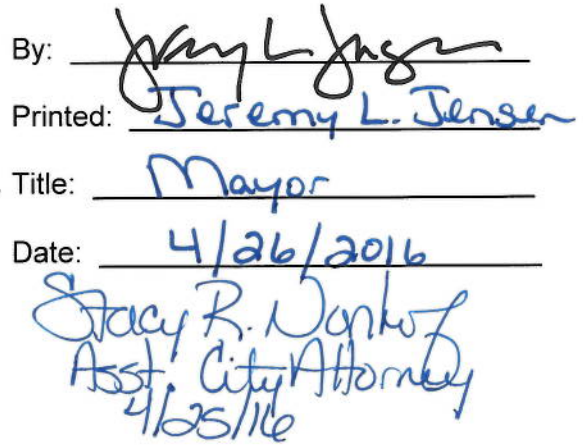 By: Jeremy L Jensen
Printed: Jeremy L. Jensen
Title: Mayor
Date: 4/26/2016
Stacy R.
Asst. City Attorney
4/25/16